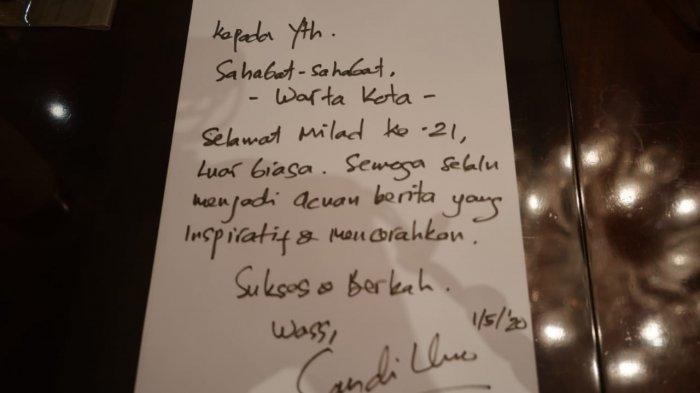 Kepada Yth.
Sahabat-sahabat,
- Warta Kota -
Selamat Milad ke-21,
Luar biasa. Semoga selalu
menjadi acuan berita yang
Inspiratif & Mencerahkan.
Sukses & Berkah.
Wass,
1/5/'20
Sandi Uno